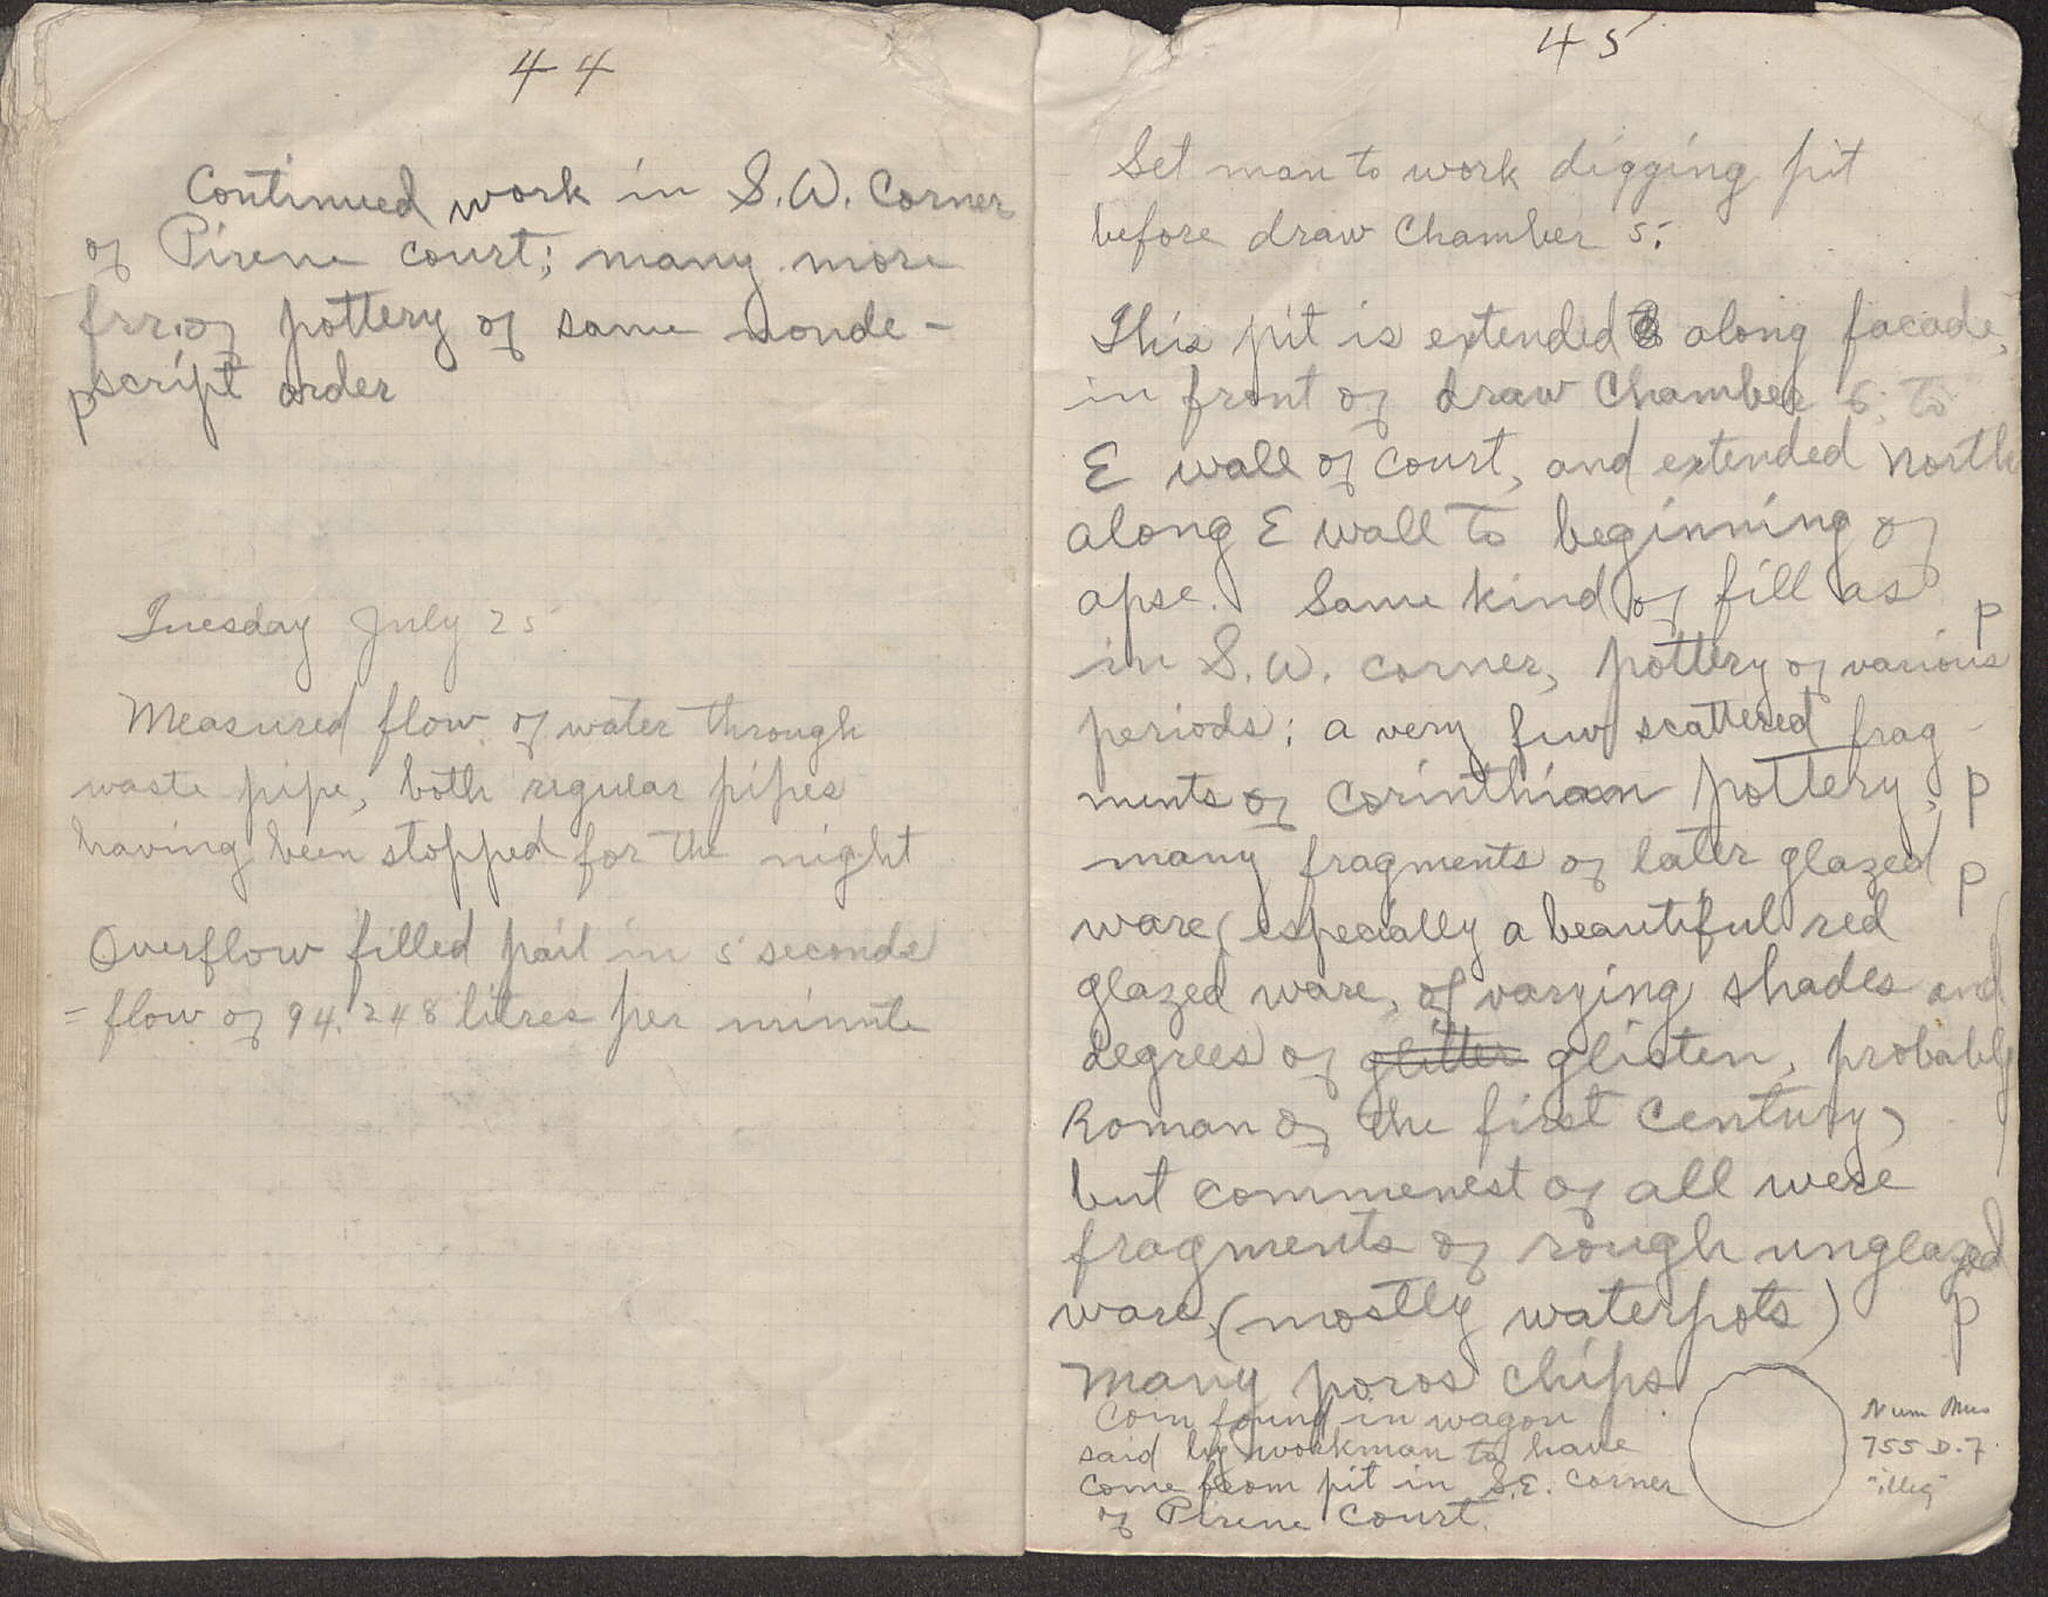 44
Continued work in S.W. Corner
of Pirene court; many more
frr. of pottery of same nonde-
p script order
Tuesday July 25
Measured flow of water through
waste pipe, both regular pipes
having been stopped for the night
Overflow filled pail in 5 seconds
= flow of 94.248 litres per minute
45
Set man to work digging pit
before draw Chamber 5.
This pit is extended along facade,
in front of draw Chamber 6. to
E wall of court, and extended north
along E wall to beginning of
apse. Same kind of fill as p
in S.W. corner, pottery of various
periods; a very few scattered frag-
ments of Corinthian pottery, p
many fragments of later glazed p
ware (especially a beautiful red
glazed ware, of varying shades and
degrees of glitter glisten, probably
Roman of the first century)
but commenest of all were
fragments of rough unglazed
ware, (mostly waterpots) p
Many poros chips.
Coin found in wagon
said by workman to have
come from pit in S.E. corner
of Pirene Court.
Num Mus
755 D.7.
"illeg"